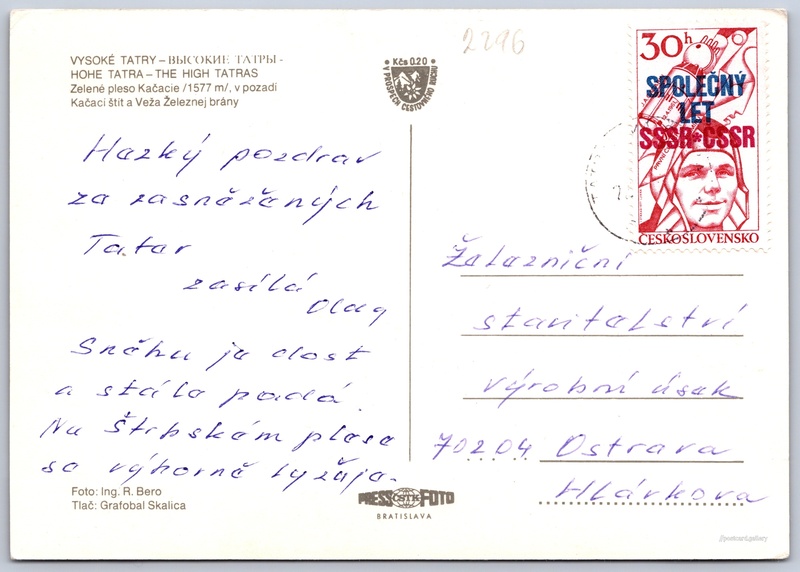 VYSOKÉ TATRY – ВЫСОКИЕ ТАТРЫ -
HOHE TATRA – THE HIGH TATRAS
Zelené pleso Kačacie /1577 m/, v pozadí
Kačací štít a Veža Železnej brány
Kčs 0.20
V PROSPECH CESTOVNÉHO RUCHU
2296
30h
SPOLEČNÝ
LET
SSSR*ČSSR
ČESKOSLOVENSKO
Hezký pozdrav
za zasněžených
Tater
zasílá
Oleg
Sněhu je dost
a stále padá.
Na Štrbském plese
se výborně lyžuje.
Železniční
stavitelství
výrobní úsek
70204 Ostrava
Hlárkova
Foto: Ing. R. Bero
Tlač: Grafobal Skalica
PRESS ČSTK FOTO
BRATISLAVA